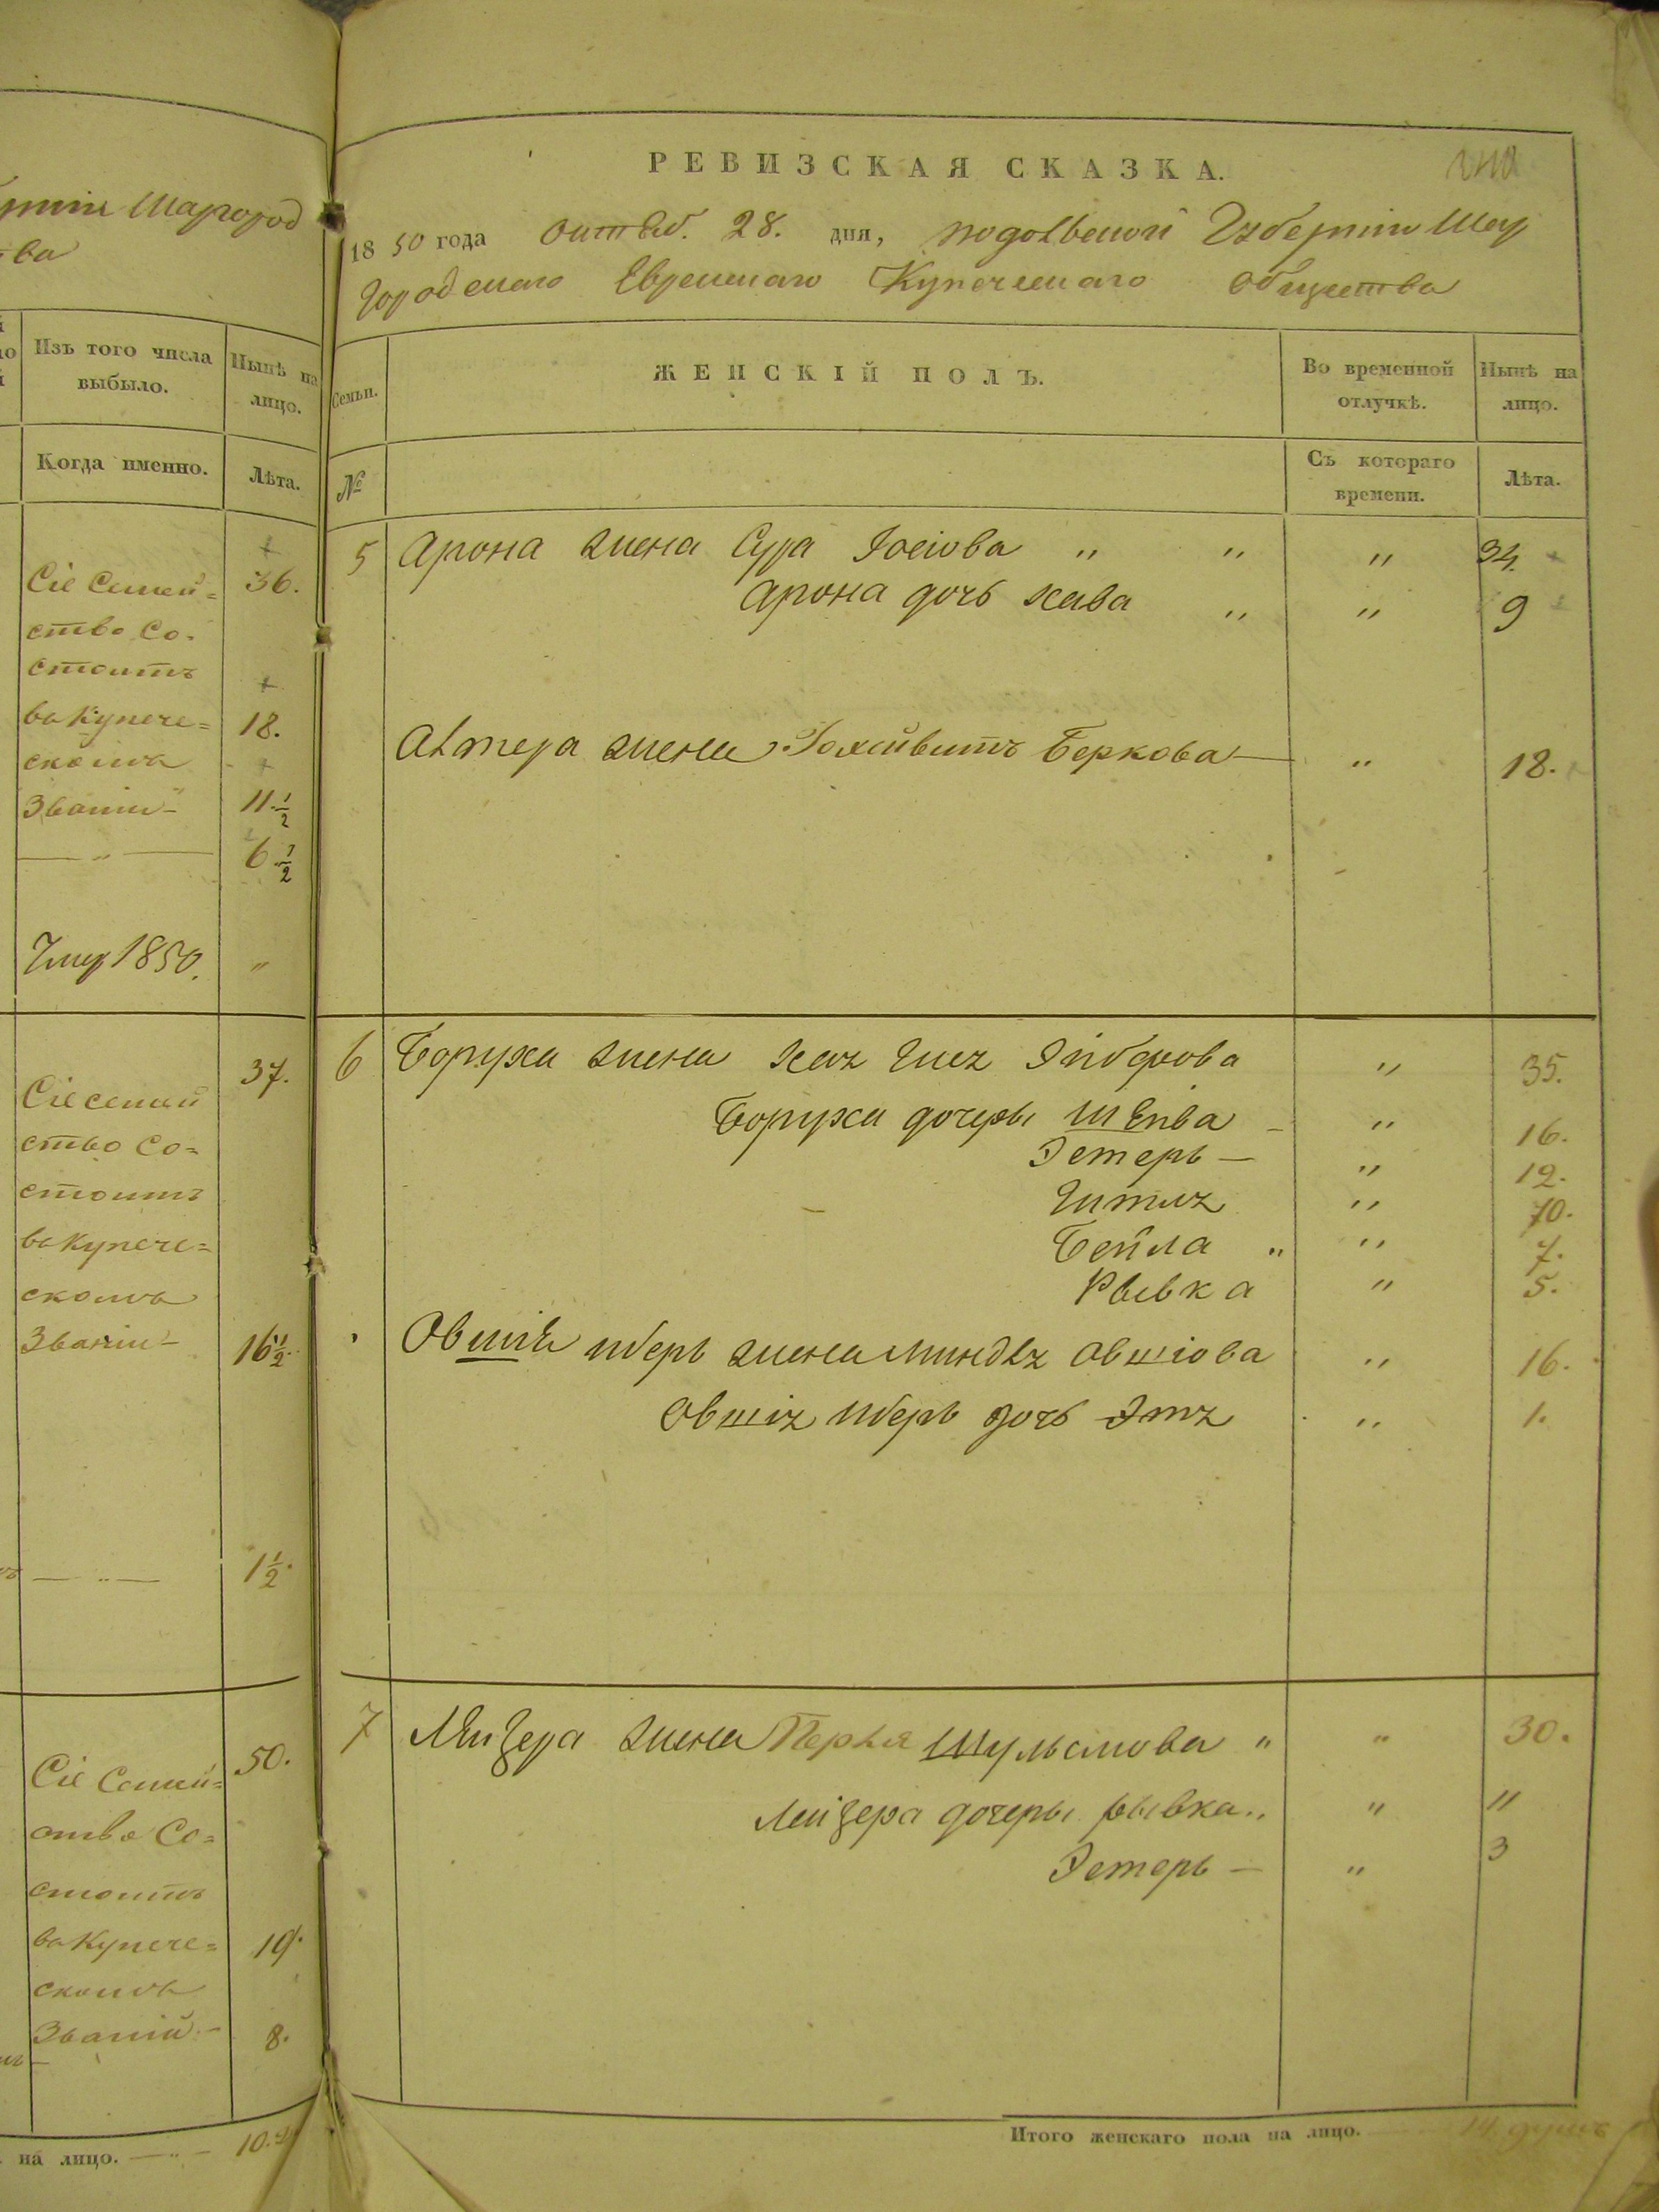 Шаргород
ва
Изъ того числа
выбыло.
Нынѣ на
лицо.
Когда именно.
Лѣта.
Сіе Семей=
36.
ство Со-
стоитъ
въ Купече=
18.
скомъ
Званіи
11 1/2
6 1/2
Умер 1850.
"
37.
Сіе семей
ство Со=
стоитъ
въ Купече=
скомъ
Званіи
16 1/2
1 1/2
50.
Сіе Семей=
ство Со=
стоитъ
въ Купече=
19.
скомъ
Званій
8.
на лицо.
РЕВИЗСКАЯ СКАЗКА.
1850 года Октяб. 28. дня, подольской Губерніи Шар
городскаго Еврейскаго Купеческаго Общества
Семьи.
ЖЕНСКІЙ ПОЛЪ.
Во временной
отлучкѣ.
Нынѣ на
лицо.
№
Съ котораго
времени.
Лѣта.
5 Арона жена Сура Іосіова " " " 34.
Арона дочь хава " " 9
Алтера жена Беркова " 18.
6 Боруха жена " 35.
Боруха дочеры Шейва " 16.
Эстеръ " 12.
Гитля " 10.
Бейла " " 7.
Рывка " 5.
Овшія жена Миндля Овшіова " 16.
Овшія дочь Этя " 1.
7 Лейзера жена Перля Шулымова " " 30.
Лейзера дочеры рывка " " 11
Эстеръ " 3
Итого женскаго пола на лицо. 14 душъ